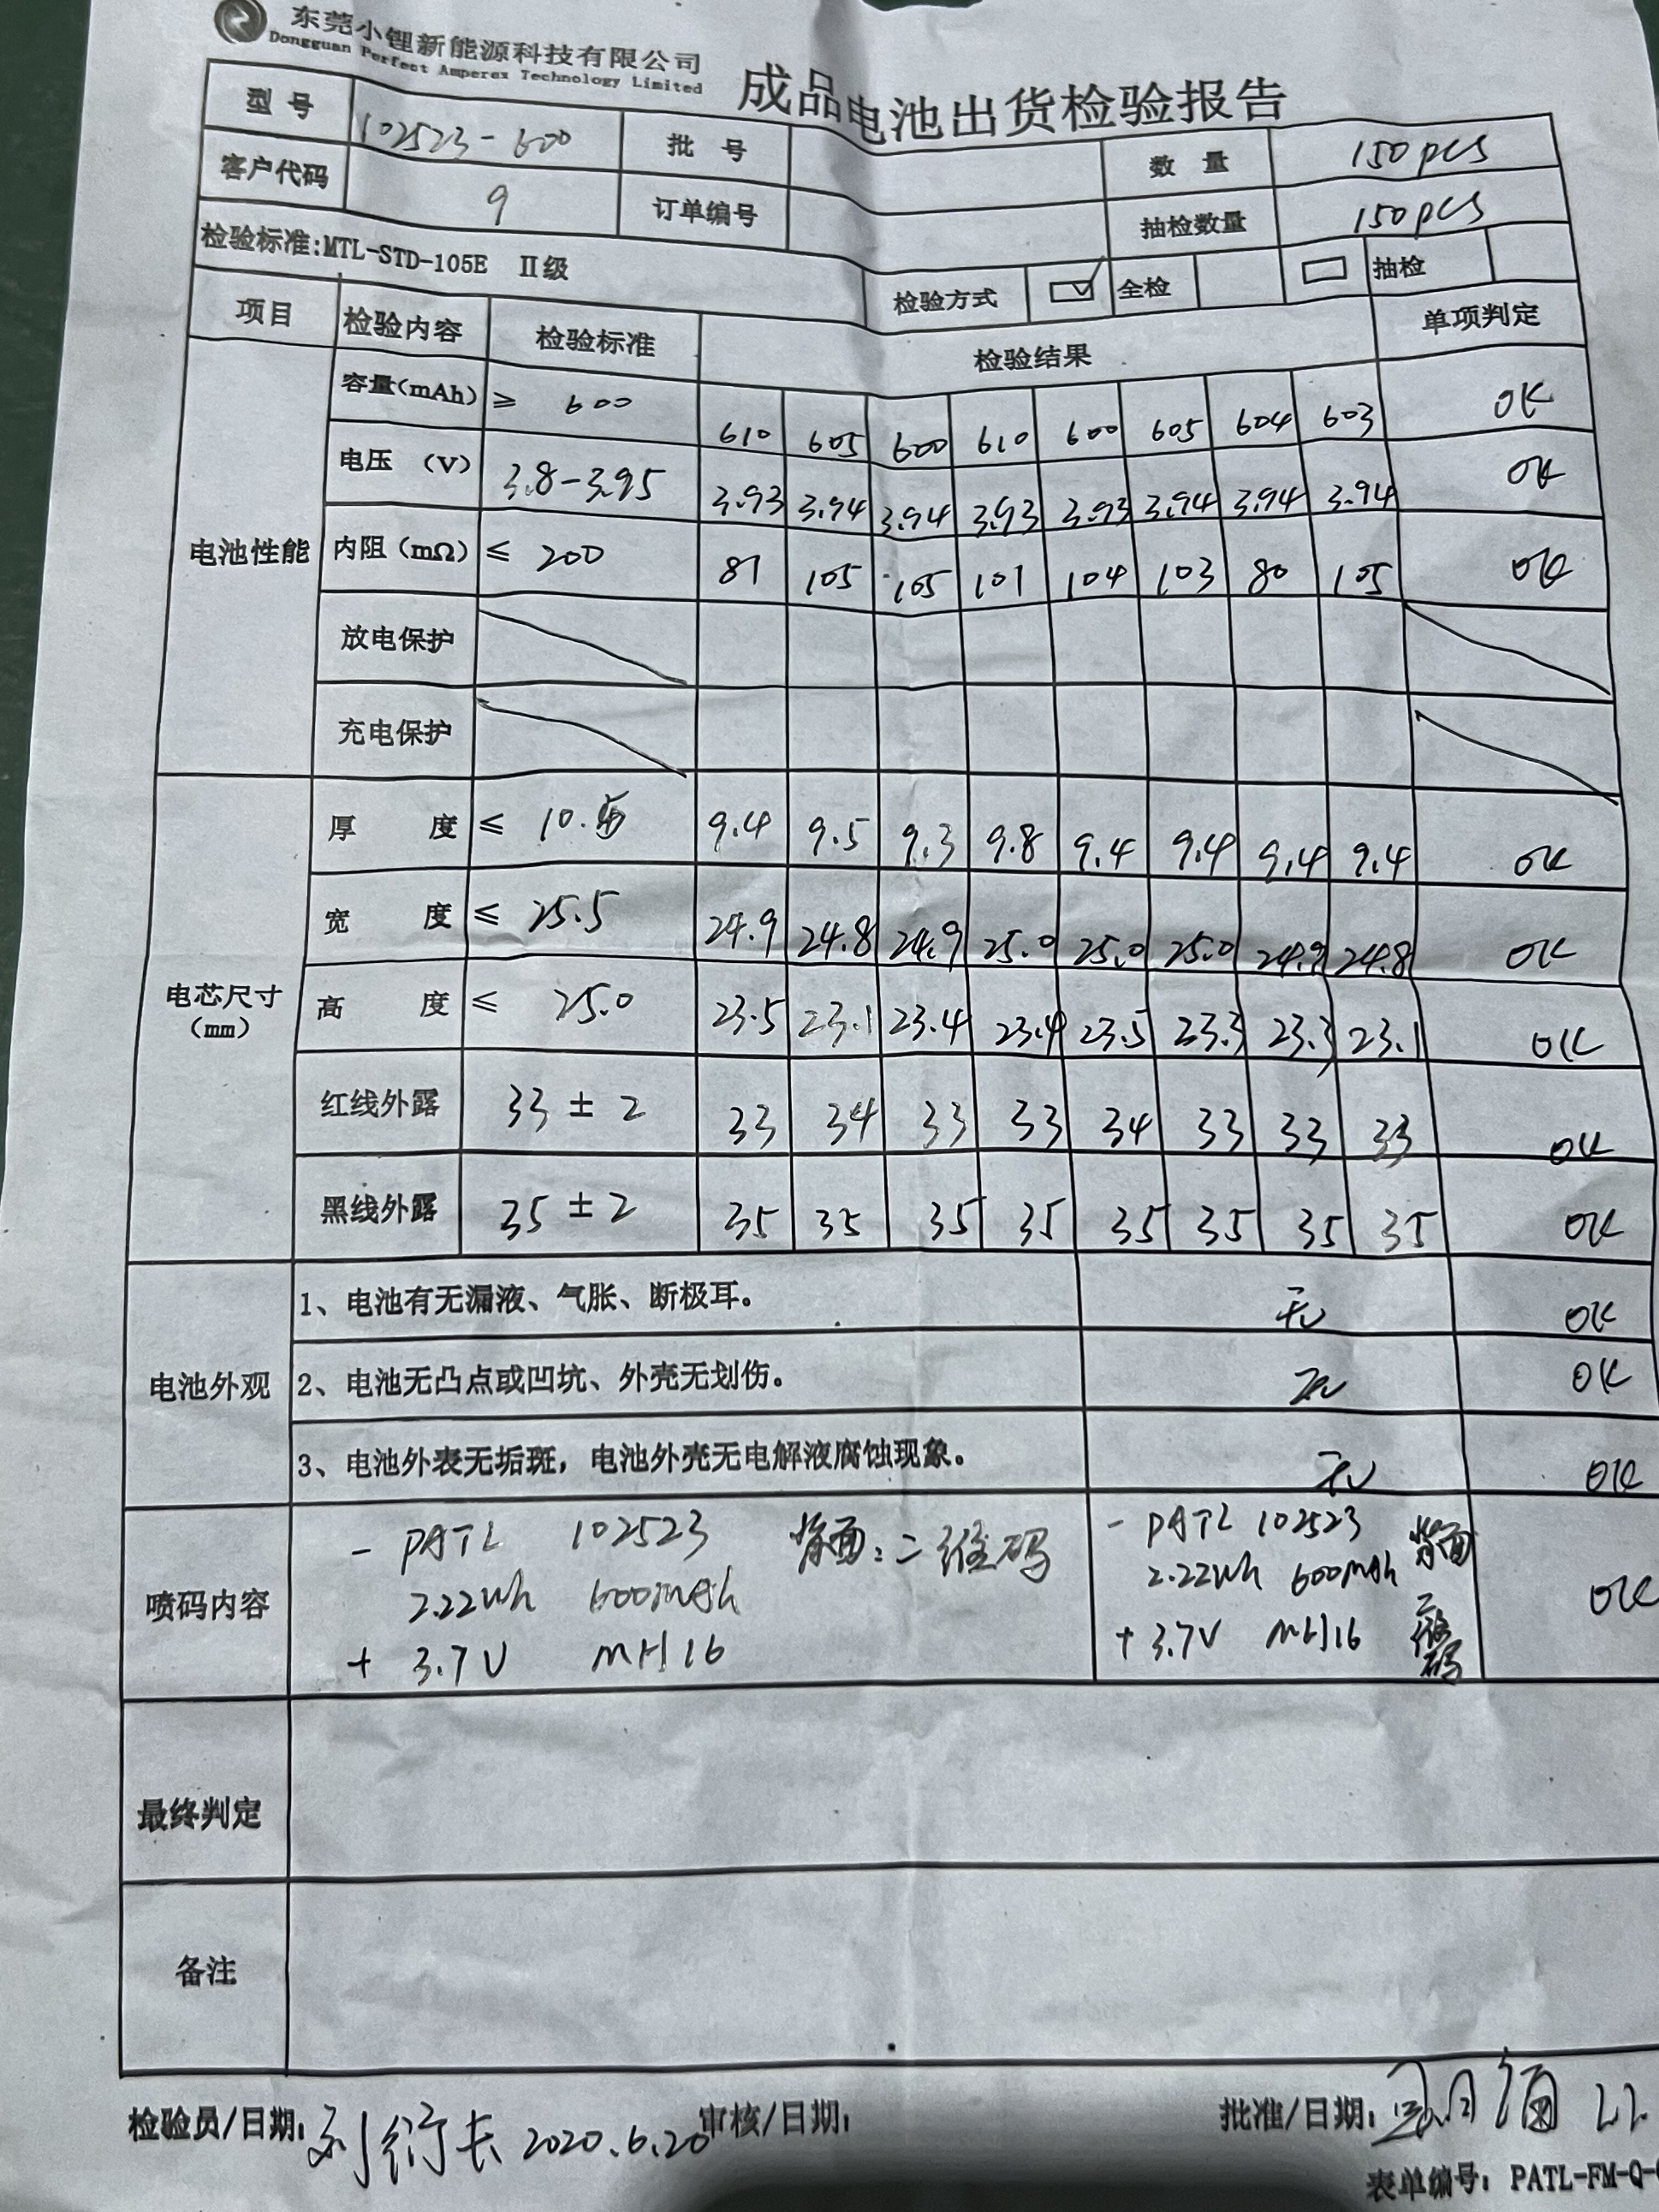 东莞小锂新能源科技有限公司
Dongguan Perfect Amperex Technology Limited
成品电池出货检验报告
型 号 102523-600 批 号 数 量 150pcs
客户代码 9 订单编号 抽检数量 150pcs
检验标准:MTL-STD-105E Ⅱ级 检验方式 全检 抽检
项目 检验内容 检验标准 检验结果 单项判定
电池性能
容量(mAh) ≥ 600 610 605 600 610 600 605 604 603 OK
电压 (V) 3.8-3.95 3.93 3.94 3.94 3.93 3.93 3.94 3.94 3.94 OK
内阻(mΩ) ≤ 200 81 105 105 101 104 103 80 105 OK
放电保护
充电保护
电芯尺寸
(mm)
厚 度 ≤ 10.5 9.4 9.5 9.3 9.8 9.4 9.4 9.4 9.4 OK
宽 度 ≤ 25.5 24.9 24.8 24.9 25.0 25.0 25.0 24.9 24.8 OK
高 度 ≤ 25.0 23.5 23.1 23.4 23.4 23.5 23.3 23.3 23.1 OK
红线外露 33 ± 2 33 34 33 33 34 33 33 33 OK
黑线外露 35 ± 2 35 35 35 35 35 35 35 35 OK
电池外观
1、电池有无漏液、气胀、断极耳。 无 OK
2、电池无凸点或凹坑、外壳无划伤。 无 OK
3、电池外表无垢斑，电池外壳无电解液腐蚀现象。 无 OK
喷码内容
- PATL 102523 背面:二维码 - PATL 102523 背面
2.22Wh 600mAh 2.22Wh 600mAh 二维码 OK
+ 3.7V MH16 + 3.7V MH16
最终判定
备注
检验员/日期: 刘衍长 2020.6.20 审核/日期: 批准/日期:
表单编号: PATL-FM-Q-